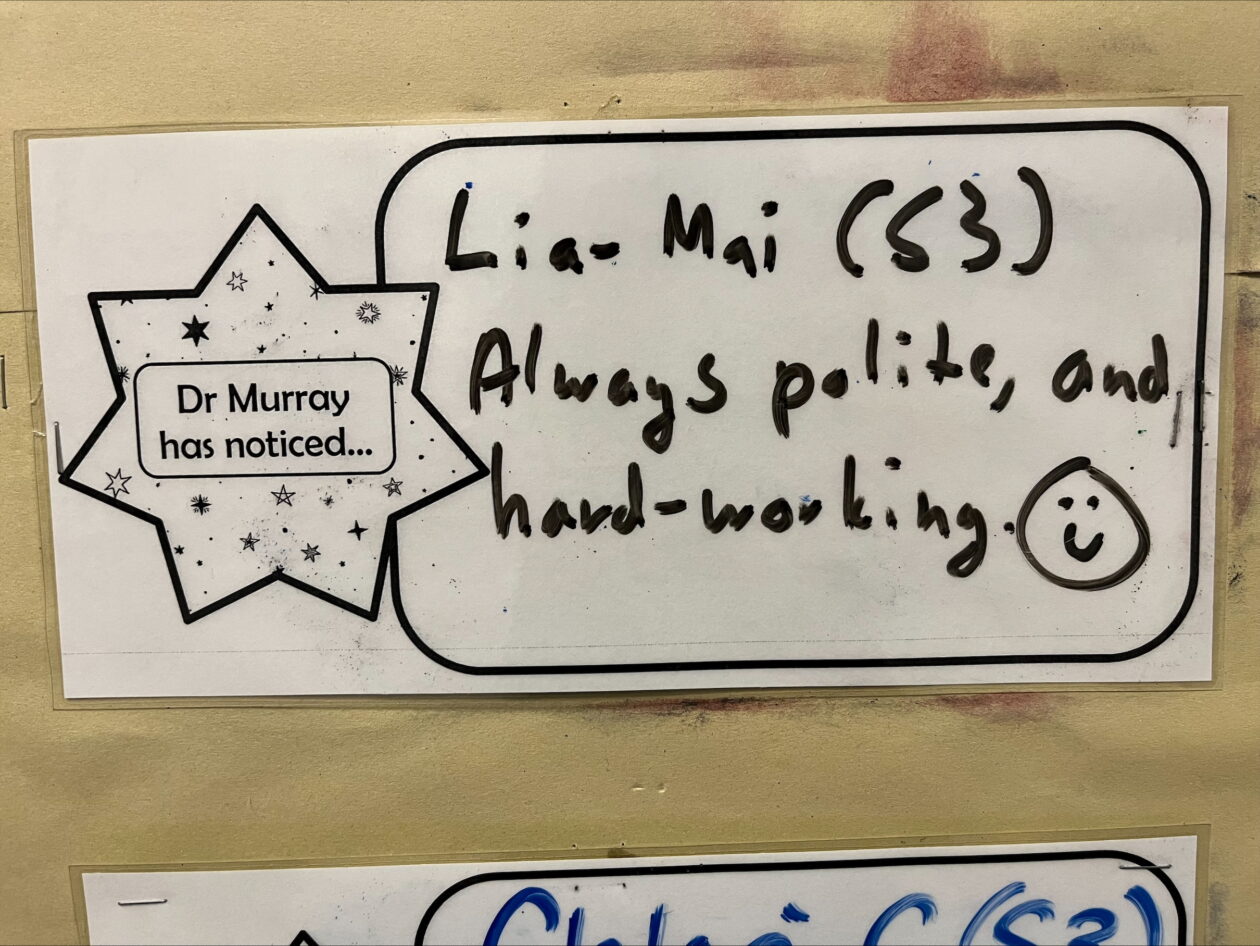 Dr Murray
has noticed...
Lia-Mai (S3)
Always polite, and
hard-working.
Chloe C (S2)